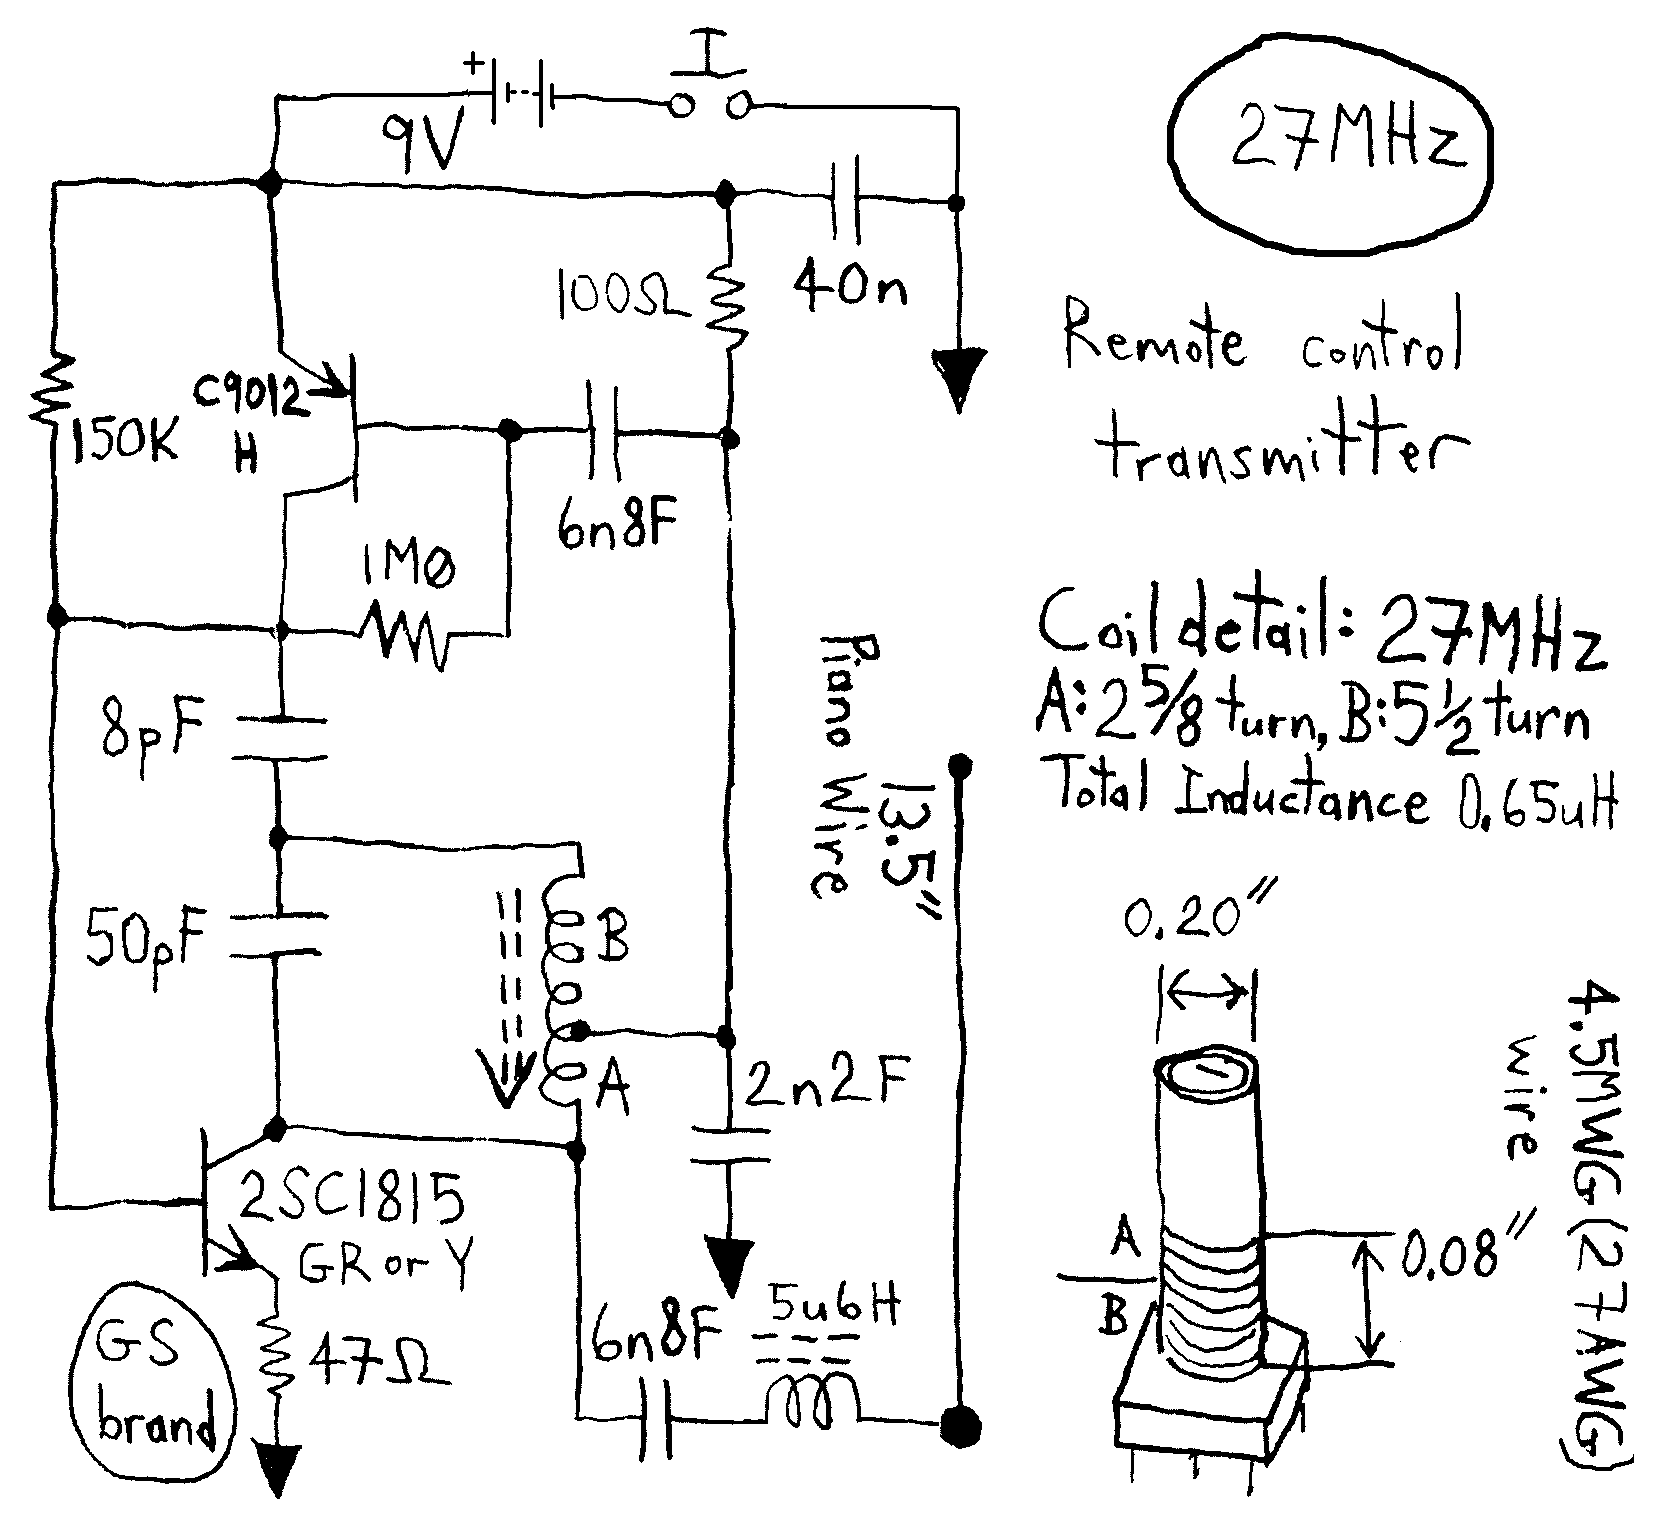 I
+
9V
27MHz
100Ω
40n
Remote control
transmitter
C9012
H
150K
6n8F
1M0
Coil detail: 27MHz
A: 2 5/8 turn, B: 5 1/2 turn
Total Inductance 0.65uH
8pF
Piano Wire
13.5"
50pF
B
A
2n2F
0.20"
4.5MWG (27AWG)
wire
2SC1815
GR or Y
A
B
0.08"
GS
brand
47Ω
6n8F
5u6H